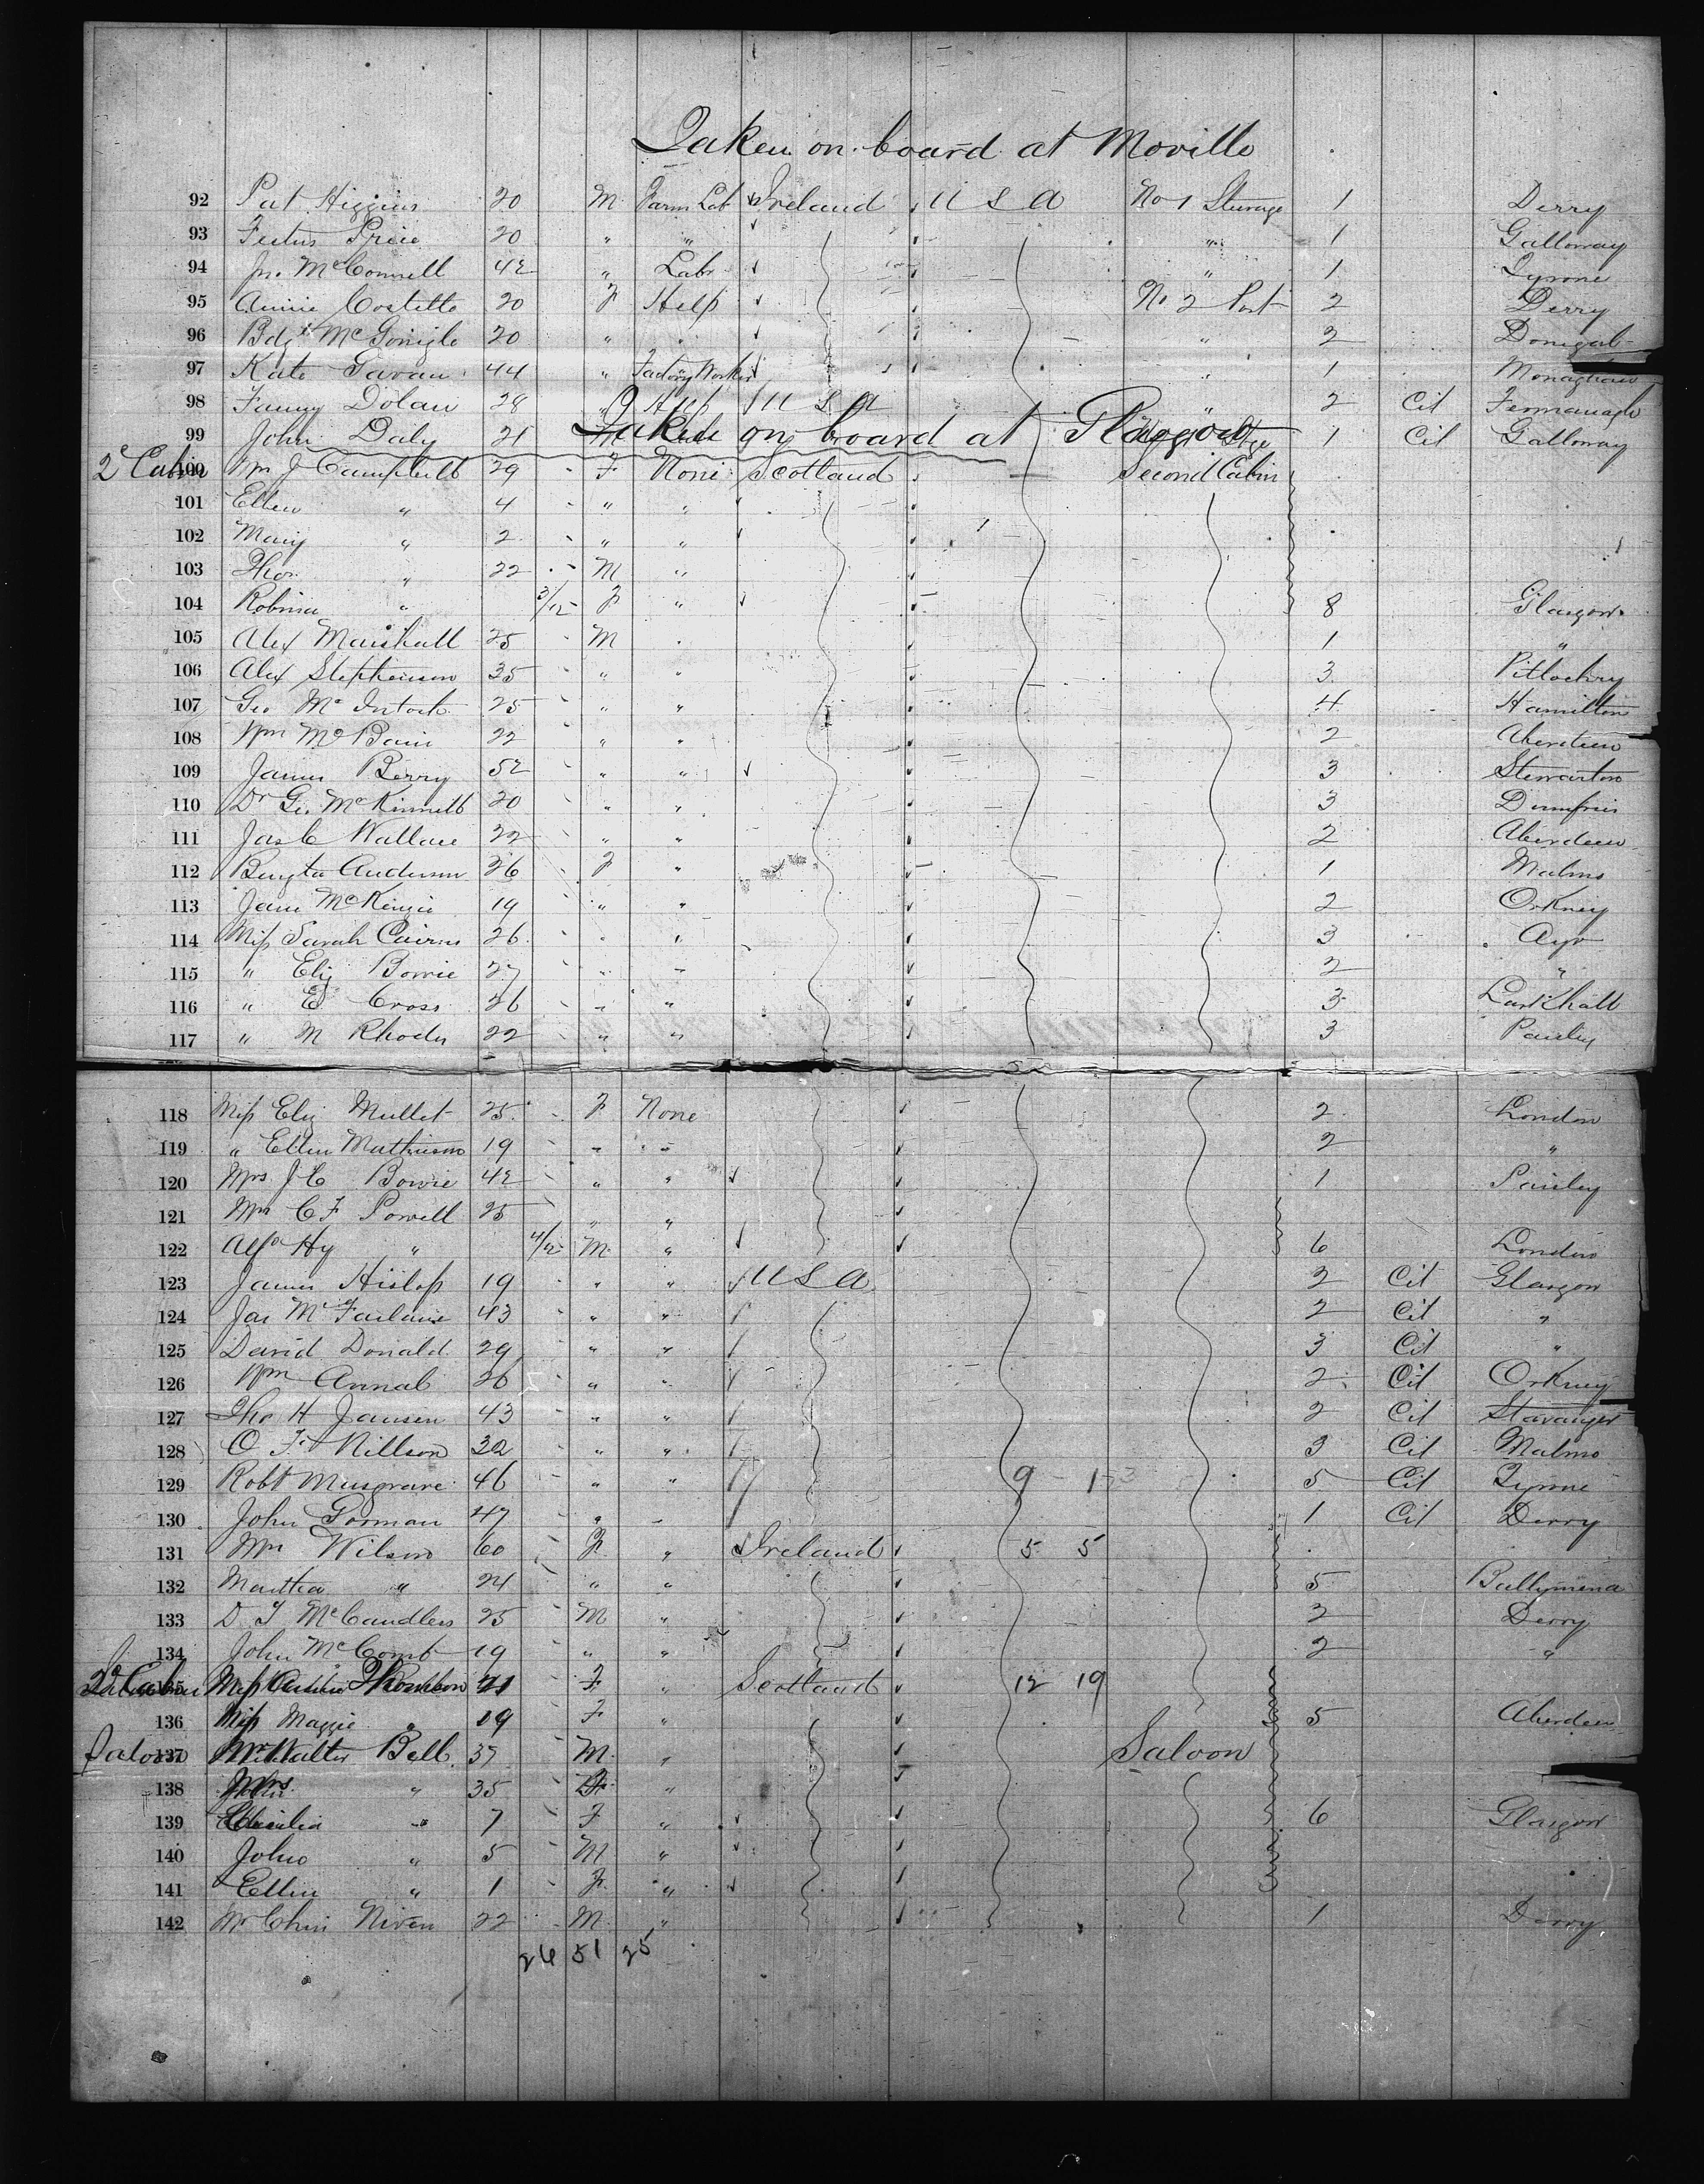 Taken on board at Moville
92 Pat Higgins 20 M Farm Lab Ireland U S A No 1 Steerage 1 Derry
93 Festus Price 20 " " " 1 Galloway
94 Jno McConnell 42 " Labr " 1 Tyrone
95 Annie Costello 20 F Help No 2 Port 2 Derry
96 Bdgt McGonigle 20 " " " 2 Donegal
97 Kate Gavan 44 " Factory Worker " 1 Monaghan
98 Fanny Dolan 28 " Help U S A " 2 Cit Fermanagh
Taken on board at Glasgow
99 John Daly 21 M 1 Cit Galloway
2d Cabin 100 Mrs J Campbell 29 F None Scotland Second Cabin
101 Ellen " 4 " "
102 Mary " 2 " "
103 Thos " 22 M "
104 Robina " 3/12 F " 8 Glasgow
105 Alex Marshall 25 M " 1 "
106 Alex Stephenson 35 " " 3 Pitlochry
107 Geo McIntosh 25 " " 4 Hamilton
108 Wm McBain 22 " " 2 Aberdeen
109 James Berry 52 " " 3 Stewarton
110 Dr Geo McKinnell 20 " " 3 Dumfries
111 Jas C Wallace 22 " " 2 Aberdeen
112 Bengta Anderson 26 F " 1 Malmo
113 Jane McKenzie 19 " " 2 Orkney
114 Miss Sarah Cairns 26 " " 3 Ayr
115 " Eliz Bowie 27 " " 2 "
116 " E Cross 26 " " 3 Larkhall
117 " M Rhodes 22 " " 3 Paisley
118 Miss Eliz Mullet 25 F None 2 London
119 " Ellen Mathieson 19 " " 2 "
120 Mrs J C Bowie 42 " " 1 Paisley
121 Mrs C F Powell 25 " "
122 Alfd Hy " 4/12 M " 6 London
123 James Hislop 19 " " U S A 2 Cit Glasgow
124 Jas McFarlane 43 " " 2 Cit "
125 David Donald 29 " " 3 Cit "
126 Wm Annal 26 " " 2 Cit Orkney
127 Tho H Jansen 43 " " 2 Cit Stavanger
128 O F Nillson 32 " " 3 Cit Malmo
129 Robt Musgrave 46 " " 9 - 1-3 5 Cit Tyrone
130 John Gorman 47 " " 1 Cit Derry
131 Mrs Wilson 60 F " Ireland 5 5
132 Martha " 24 " " 5 Ballymena
133 D J McCandless 25 M " 2 Derry
134 John McComb 19 " " 2 "
2d Cabin 135 Miss Thomson 21 F " Scotland 12 19
136 Miss Maggie " 19 F " 5 Aberdeen
Saloon 137 Mr Walter Bell 37 M " Saloon
138 Mrs " 35 F "
139 Cecilia " 7 F " 6 Glasgow
140 John " 5 M "
141 Ellen " 1 F "
142 Mr Chris Niven 22 M " 1 Derry
26 51 25